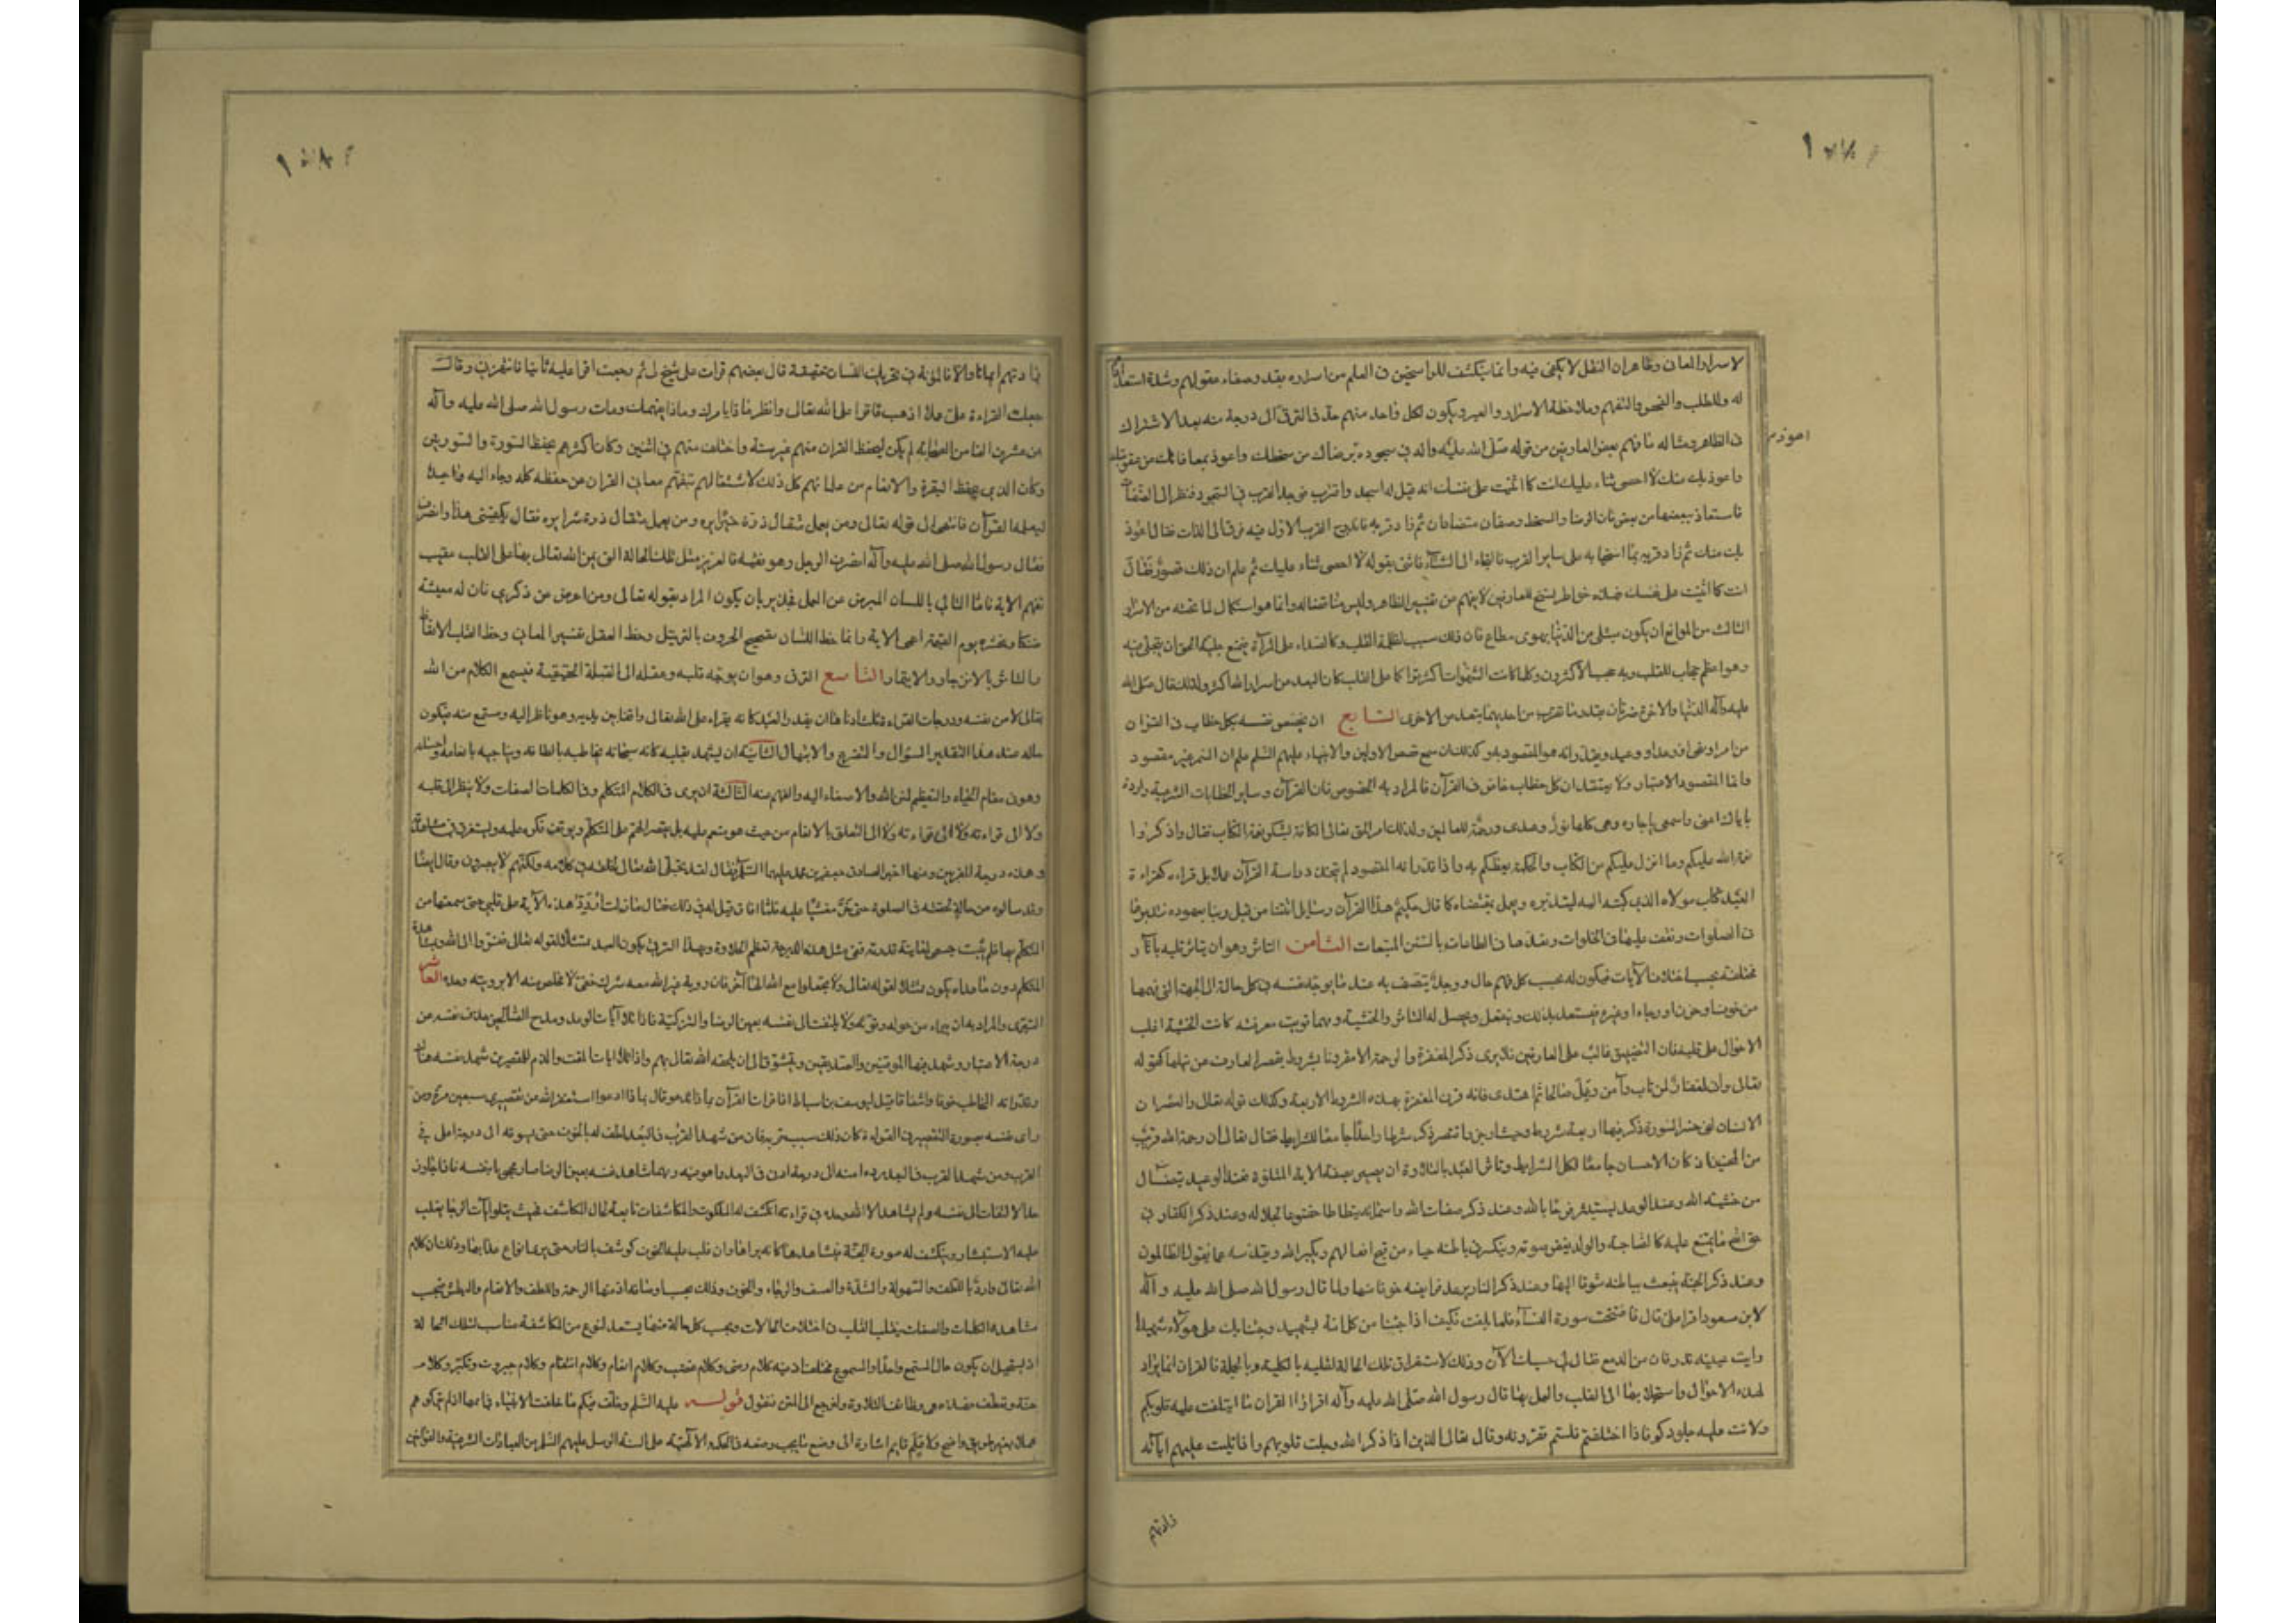 لاسرار المعانى وظاهر ان النقل لا يكفى فيه وانما ينكشف للراسخين فى العلم من اسراره بقدر صفاء عقولهم وشدة استعدادهم
له وللطلب والفحص والتفهم وملاحظة الاسرار والعبر ويكون لكل واحد منهم حظ فى الترقى الى درجة منه بعد الاشتراك
فى الظاهر ومثاله ما فهم بعض العارفين من قوله صلى الله عليه وآله فى سجوده برضاك من سخطك واعوذ بمعافاتك من عقوبتك
اعوذ
واعوذ بك منك لا احصى ثناء عليك انت كما اثنيت على نفسك انه قيل له اسجد واقترب فوجد القرب فى السجود فنظر الى الصفات
فاستعاذ ببعضها من بعض فان الرضا والسخط وصفان متضادان ثم زاد قربه فاندرج القرب الاول فيه فرقى الى الذات فقال اعوذ
بك منك ثم زاد قربه بما استحيا به على القرب فالتجاء الى الثناء فاثنى بقوله لا احصى ثناء عليك ثم علم ان ذلك قصور فقال
انت كما اثنيت على نفسك فهذه خواطر تسنح للعارفين لا يفهم من تفسير الظاهر وليس مناقضا له وانما هو استكمال لما تحته من الاسرار
الثالث من الموانع ان يكون مبتلى من الدنيا بهوى مطاع فان ذلك سبب لظلمة القلب وكالصداء على المرآة يمنع جلية الحق ان يتجلى فيه
وهو اعظم حجاب للقلب وبه حجب الاكثرون وكلما كانت الشهوات اكثر تراكما على القلب كان البعد من اسرار الله اكثر ولذلك قال صلى الله
عليه وآله الدنيا والاخرة ضرتان بقدر ما تقرب من احديهما تبعد من الاخرى السابع ان يخصص نفسه بكل خطاب فى القران
من امر او نهى او وعد او وعيد ويقدر انه هو المقصود به وكذلك ان سمع قصص الاولين والانبياء عليهم السلم علم ان السمر غير مقصود
وانما المقصود الاعتبار ولا يعتقد ان كل خطاب خاص فى القرآن فالمراد به الخصوص فان القرآن وساير الخطابات الشرعية واردة
باياك اعنى واسمعى يا جاره وهى كلها نور وهدى ورحمة للعالمين ولذلك امر الحق تعالى الكافة بشكر نعمة الكتاب فقال واذكروا
نعمة الله عليكم وما انزل عليكم من الكتاب والحكمة يعظكم به واذا قدر انه المقصود لم يتخذ دراسة القرآن عملا بل قراءه كقراءة
العبد كتاب مولاه الذى كتبه اليه ليتدبره ويعمل بمقتضاه كما قال حكيم هذا القرآن رسايل اتتنا من قبل ربنا بعهوده نتدبرها
فى الصلوات ونقف عليها فى الخلوات ونعدها فى الطاعات بالسنن المتبعات الثامن التاثر وهو ان يتاثر قلبه بآثار
مختلفة بحسب اختلاف الآيات فيكون له بحسب كل فهم حال ووجد يتصف به عند ما يوجه نفسه فى كل حالة الى الجهة التى فهمها
من خوف او حزن او رجاء او غيره فيستعد بذلك وينفعل ويحصل له التاثر والخشية ومهما قويت معرفته كانت الخشية اغلب
الاحوال على قلبه فان التضييق غالب على العارفين فلا يرى ذكر المغفرة والرحمة الا مقرونا بشروط يقصر العارف عن نيلها كقوله
تعالى وانى لغفار لمن تاب وآمن وعمل صالحا ثم اهتدى فانه قرن المغفرة بهذه الشروط الاربعة وكذلك قوله تعالى والعصر ان
الانسان لفى خسر السورة ذكر فيها اربعة شروط وحيث اوجز واقتصر ذكر شرطا واحدا جامعا للشرايط فقال تعالى ان رحمة الله قريب
من المحسنين اذ كان الاحسان جامعا لكل الشرايط وتاثر العبد بالتلاوة ان يصير بصفة الاية المتلوة فعند الوعيد يتضال
من خشية الله وعند الوعد يستبشر فرحا بالله وعند ذكر صفات الله واسمائه يتطاطا خضوعا لجلاله وعند ذكر الكفار فى
حق الله ما يمتنع عليه كالصاحبة والولد يغض صوته وينكسر فى باطنه حياء من قبح افعالهم ويكبر الله ويقدسه عما يقول الظالمون
وعند ذكر الجنة ينبعث بباطنه شوقا اليها وعند ذكر النار يرعد فرايصه خوفا منها ولما قال رسول الله صلى الله عليه وآله
لابن مسعود اقرا على قال فافتتحت سورة النساء فلما بلغت فكيف اذا جئنا من كل امة بشهيد وجئنا بك على هؤلاء شهيدا
رايت عينيه تذرفان من الدمع فقال لى حسبك الآن وذلك لاستغراق تلك الحالة لقلبه بالكلية وبالجملة فالقران انما يراد
لهذه الاحوال واستجلابها الى القلب والعمل بها قال رسول الله صلى الله عليه وآله اقراوا القران ما ايتلفت عليه قلوبكم
ولانت عليه جلودكم فاذا اختلفتم فلستم تقرؤنه وقال تعالى الذين اذا ذكر الله وجلت قلوبهم واذا تليت عليهم اياته
زادتهم
زادتهم ايمانا والا فالمؤنة فى تحريك اللسان خفيفة قال بعضهم قرات على شيخ لى ثم رجعت اقرا عليه ثانيا فانتهرنى وقال
جعلت القراءة على عملا اذهب فاقرا على الله تعالى وانظر ماذا يامرك وماذا يفهمك ومات رسول الله صلى الله عليه وآله
عن عشرين الفا من الصحابة لم يكن يحفظ القران منهم غير ستة واختلف منهم فى اثنين وكان اكثرهم يحفظ السورة والسورتين
وكان الذى يحفظ البقرة والانعام من علمائهم كل ذلك لاشتغالهم بتفهم معانى القران عن حفظه كله وجاء اليه واحد
ليعلمه القرآن فانتهى الى قوله تعالى ومن يعمل مثقال ذرة خيرا يره ومن يعمل مثقال ذرة شرا يره فقال يكفينى هذا وانصرف
فقال رسول الله صلى الله عليه وآله انصرف الرجل وهو فقيه فالعزيز مثل تلك الحالة التى يمن الله تعالى بها على القلب عقيب
تفهم الاية فاما التالى باللسان المعرض عن العمل فجدير بان يكون المراد بقوله تعالى ومن اعرض عن ذكرى فان له معيشة
ضنكا ونحشره يوم القيمة اعمى الاية وانما حظ اللسان تصحيح الحروف بالترتيل وحظ العقل تفسير المعانى وحظ القلب الاتعاظ
والتاثر بالانزجار والانقياد التاسع الترقى وهو ان يوجه قلبه وعقله الى القبلة الحقيقية فيسمع الكلام من الله
تعالى لا من نفسه ودرجات القراءة ثلث ادناها ان يقدر العبد كانه يقراء على الله تعالى واقفا بين يديه وهو ناظر اليه ومستمع منه فيكون
حاله عند هذا التقدير السؤال والتضرع والابتهال الثانية ان يشهد بقلبه كانه سبحانه يخاطبه بالطافه ويناجيه بانعامه واحسانه
وهو فى مقام الحياء والتعظيم لمنن الله والاصغاء اليه والفهم منه الثالثة ان يرى فى الكلام المتكلم وفى الكلمات الصفات ولا ينظر الى قلبه
ولا الى قراءته ولا الى التعلق بالانعام من حيث هو منعم عليه بل يقصر الهم على المتكلم ويوقف فكره عليه ويستغرق فى مشاهدته
وهذه درجة المقربين وعنها اخبر الصادق جعفر بن محمد عليهما السلم فقال لقد تجلى الله تعالى لخلقه فى كلامه ولكنهم لا يبصرون وقال ايضا
وقد سالوه عن حالة لحقته فى الصلوة حتى خر مغشيا عليه فلما افاق قيل له فى ذلك فقال ما زلت اردد هذه الآية على قلبى حتى سمعتها من
المتكلم بها فلم يثبت جسمى لمعاينة قدرته ففى مثل هذه الدرجة تعظم الحلاوة وبهذا الترقى يكون العبد ممتثلا لقوله تعالى ففروا الى الله وبمشاهدة
المتكلم دون ما عداه يكون ممتثلا لقوله تعالى ولا تجعلوا مع الله الها آخر فان روية غير الله معه شرك خفى لا مخلص منه الا برويته وحده العاشر
التبرى والمراد به ان يبراء من حوله وقوته ولا يلتفت الى نفسه بعين الرضا والتزكية فاذا تلا آيات الوعد ومدح الصالحين حذف نفسه عن
درجة الاعتبار وشهد فيها الموقنين والصديقين وتشوق الى ان يلحقه الله تعالى بهم واذا تلا ايات المقت والذم للمقصرين شهد نفسه هناك
وقدر انه المخاطب خوفا واشفاقا قيل ليوسف بن اسباط اذا قرات القرآن بماذا تدعو قال بماذا ادعوا استغفر الله من تقصيرى سبعين مرة ومن
راى نفسه بصورة التقصير فى القراءة كان ذلك سبب قربه فان من شهد البعد فى القرب لطف له بالخوف حتى يسوقه الى درجة اعلى فى
القرب ومن شهد القرب فى البعد رده امنه الى درجة ادنى فى البعد مما هو فيه ومهما شاهد نفسه بعين الرضا صار محجوبا بنفسه فاذا جاوز
حد الالتفات الى نفسه ولم يشاهد الا الله وحده فى قراءته انكشف له الملكوت والمكاشفات تابعة لحال المكاشف فحيث يتلو آيات الرجا يغلب
عليه الاستبشار وينكشف له صورة الجنة فيشاهدها كانه يراها وان غلب عليه الخوف كوشف بالنار حتى يرى انواع عذابها وذلك لان كلام
الله تعالى وارد باللطف والسهولة والشدة والعسف والرجاء والخوف وذلك بحسب اوصافه اذ منها الرحمة واللطف والانتقام والبطش فبحسب
مشاهدة الكلمات والصفات يتقلب القلب فى اختلاف الحالات وبحسب كل حالة منها يستعد لنوع من المكاشفة مناسب لتلك الحالة
اذ يستحيل ان يكون حال المستمع واحدا والمسموع مختلفا اذ فيه كلام رضى وكلام غضب وكلام انعام وكلام انتقام وكلام جبروت وتكبر وكلام
حنة وتعطف فهذه هى وظايف التلاوة ولنرجع الى المتن فنقول قوله عليه السلم وخلف فيكم ما خلفت الانبياء فى اممها اذ لم يتركوهم
هملا بغير طريق واضح ولا علم قايم اشارة الى وضع ما يجب وضعه فى الحكمة الالهية على السنة الرسل عليهم السلم من العبادات الشرعية والقوانين